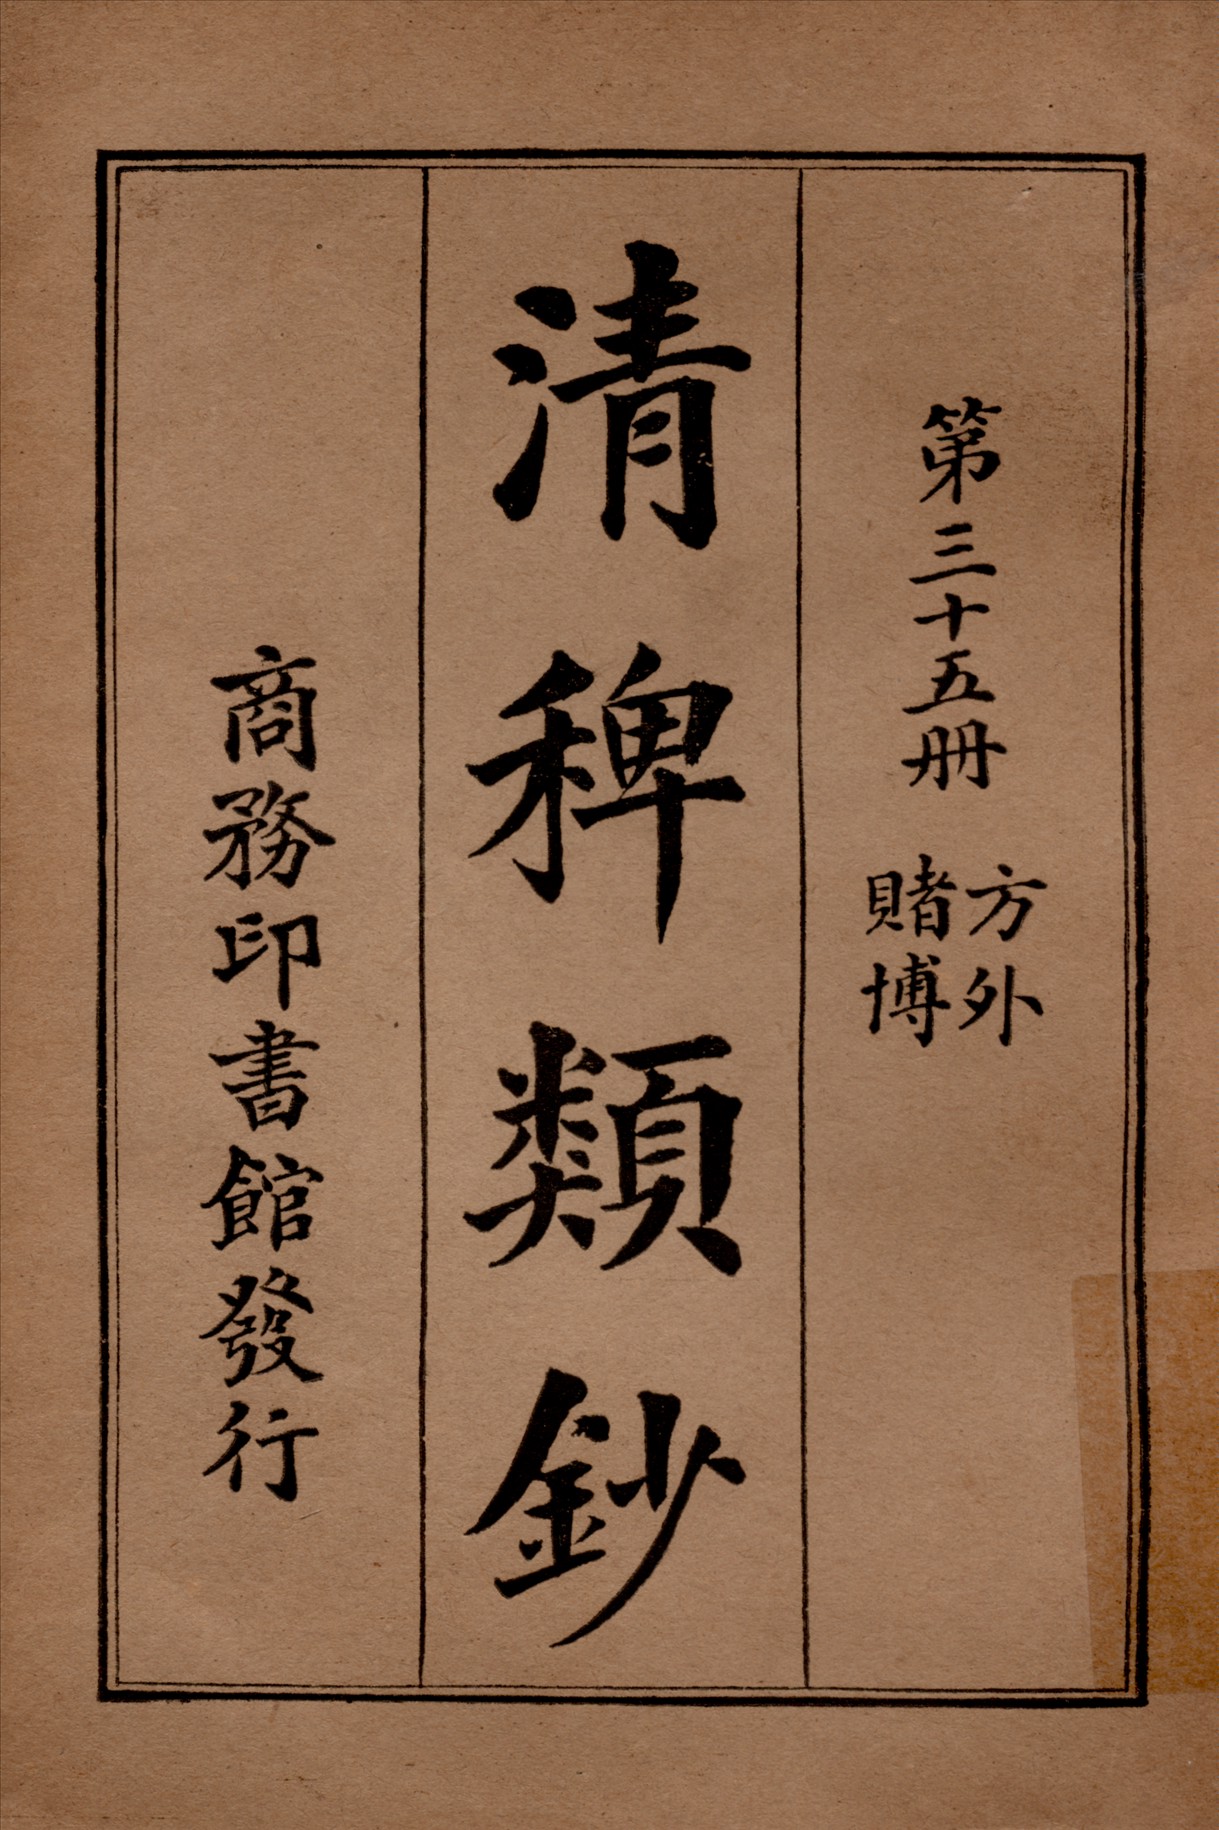 第三十五冊
方外
賭博
清稗類鈔
商務印書館發行